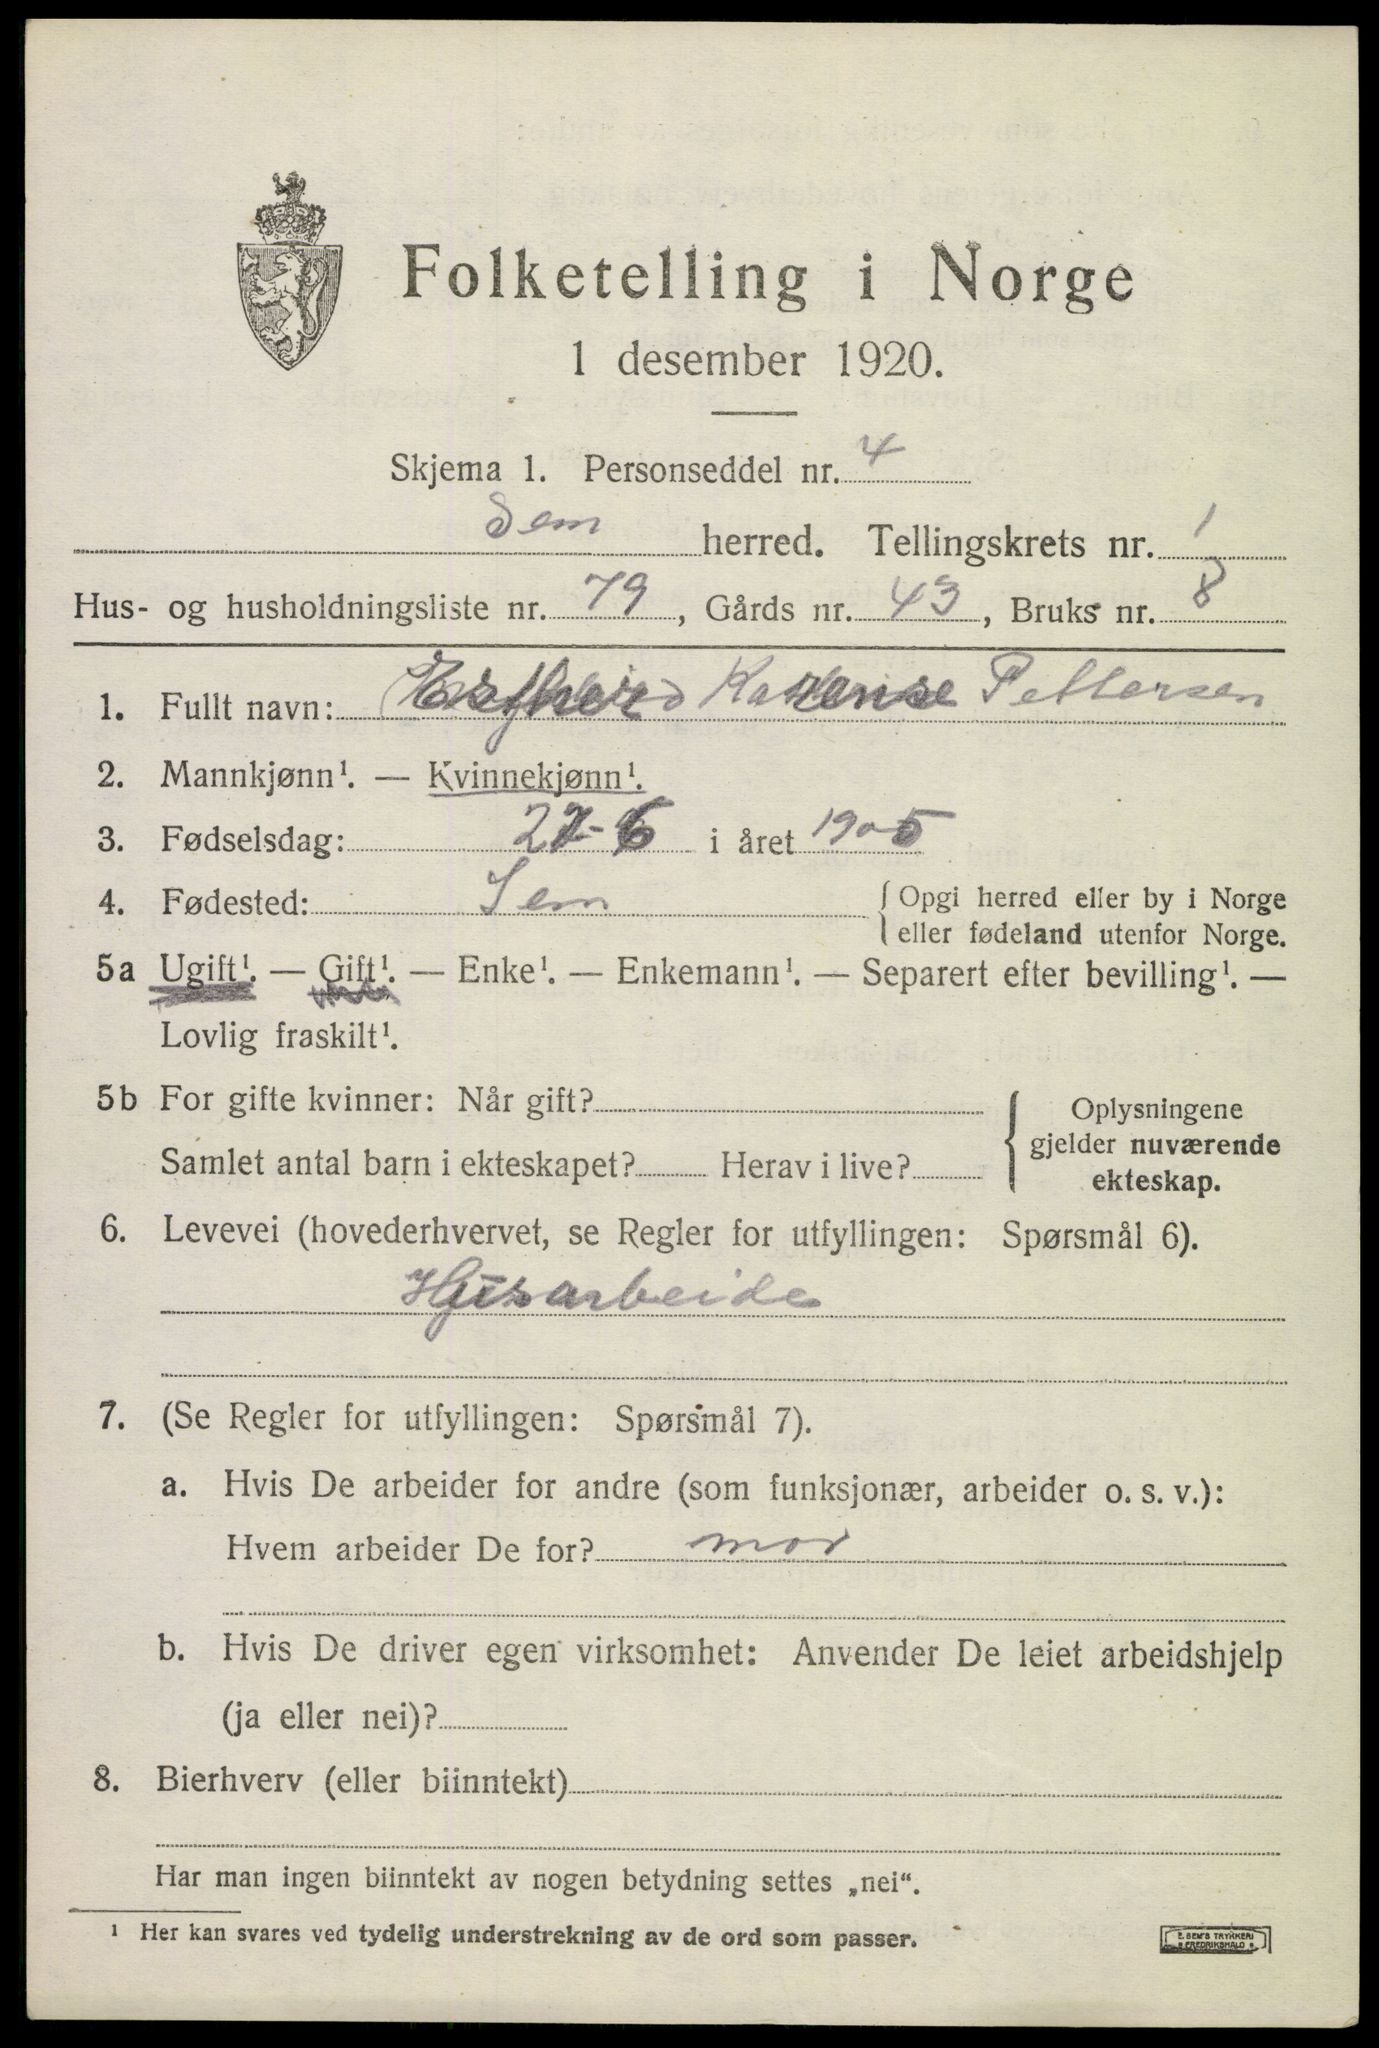 Folketelling i Norge
1 desember 1920.
Skjema 1. Personseddel nr. 4
Sem herred. Tellingskrets nr. 1
Hus- og husholdningsliste nr. 79, Gårds nr. 43, Bruks nr. 8
1. Fullt navn: Pettersen
2. Mannkjønn¹. — Kvinnekjønn¹.
3. Fødselsdag: i året 1905
4. Fødested: Sem { Opgi herred eller by i Norge
eller fødeland utenfor Norge.
5a Ugift¹. — Gift¹. — Enke¹. — Enkemann¹. — Separert efter bevilling¹. —
Lovlig fraskilt¹.
5b For gifte kvinner: Når gift?
Samlet antal barn i ekteskapet? Herav i live?
{ Oplysningene
gjelder nuværende
ekteskap.
6. Levevei (hovederhvervet, se Regler for utfyllingen: Spørsmål 6).
Husarbeide
7. (Se Regler for utfyllingen: Spørsmål 7).
a. Hvis De arbeider for andre (som funksjonær, arbeider o. s. v.):
Hvem arbeider De for? mor
b. Hvis De driver egen virksomhet: Anvender De leiet arbeidshjelp
(ja eller nei)?
8. Bierhverv (eller biinntekt)
Har man ingen biinntekt av nogen betydning settes „nei“.
¹ Her kan svares ved tydelig understrekning av de ord som passer.
E. SEM'S TRYKKERI
FREDRIKSHALD